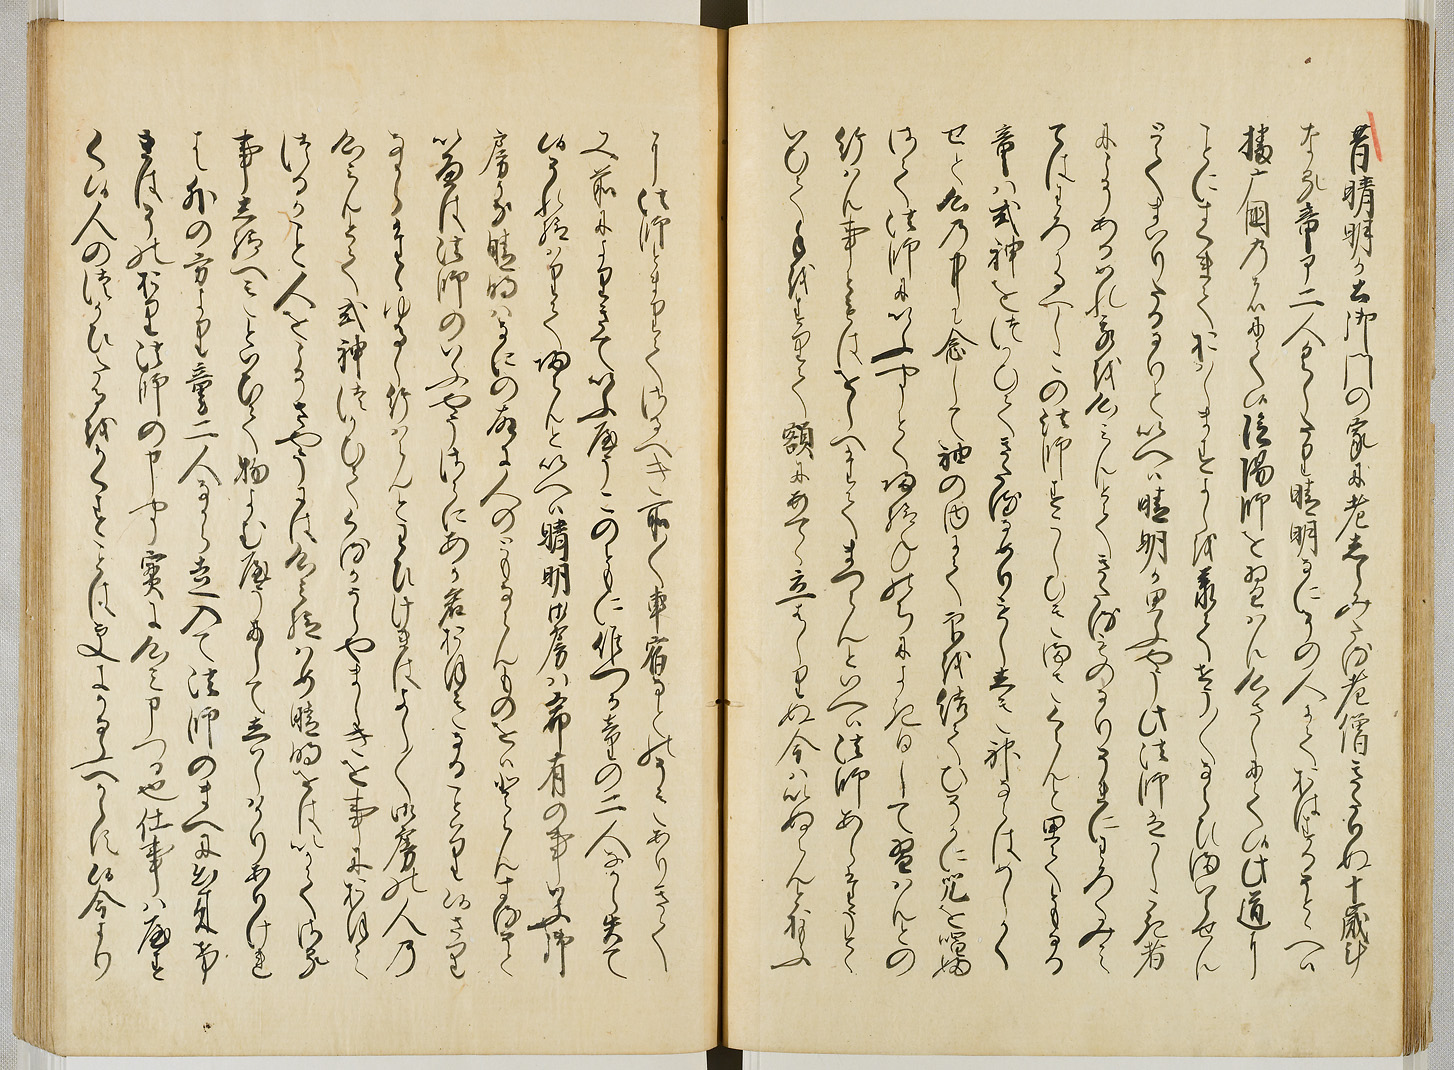 昔晴明か土御門の家に老しらみたる老僧きたりぬ十歳斗
なる童部二人具したり晴明なにその人にておはするそとへは
播广國のものにて候陰陽師を習はん心さしにて候此道に
ことにすくれておはしますよしを承て少々ならひまいらせん
とてまいりたるなりといへは晴明か思ふやう此法師はかしこき者
にこそあるめれ我を心みんとてきたるものなりそれにわろくみえ
てはわろかるへしこの法師すこしひきまさくらんと思てともなる
童は式神をつかひてきたるなめりもし式神ならはめしかく
せと心の中に念して袖の内にて印を結てひそかに咒を唱ふ
さて法師にいふやうとく帰給ひねのちによき日して習はんとの
給はん事ともはをしへたてまつらんといへは法師あらたうとと
いひて手をすりて額にあてゝ立はしりぬ今はいぬらんと思ふ
に法師とまりてさるへき所〱車宿なとのそきありきて
又前によりきていふやうこのともに候つる童の二人なから失て
候それ給はりて帰らんといへは晴明御房は希有の事いふ御
房かな晴明はなにの故に人のともならんものをはとらんするそと
いへは法師のいふやうさらにあか君おほきなることはり候さり
なからたゝゆるし給はらんとわひけれはよし〱御房の人の
心みんとて式神つかひてくるかうらやましきを事におほえ
つるかこと人をこそさやうには心み給はめ晴明をはいかてさる
事し給へきといひて物よむやうにしてしはしはかりありけれ
は外の方より童二人なから走入て法師のまへに出来け
れはそのおり法師の申やう実に心み申つる也仕事はやす
く候人のつかひたるをかくすことは更にかなふへからす候今より